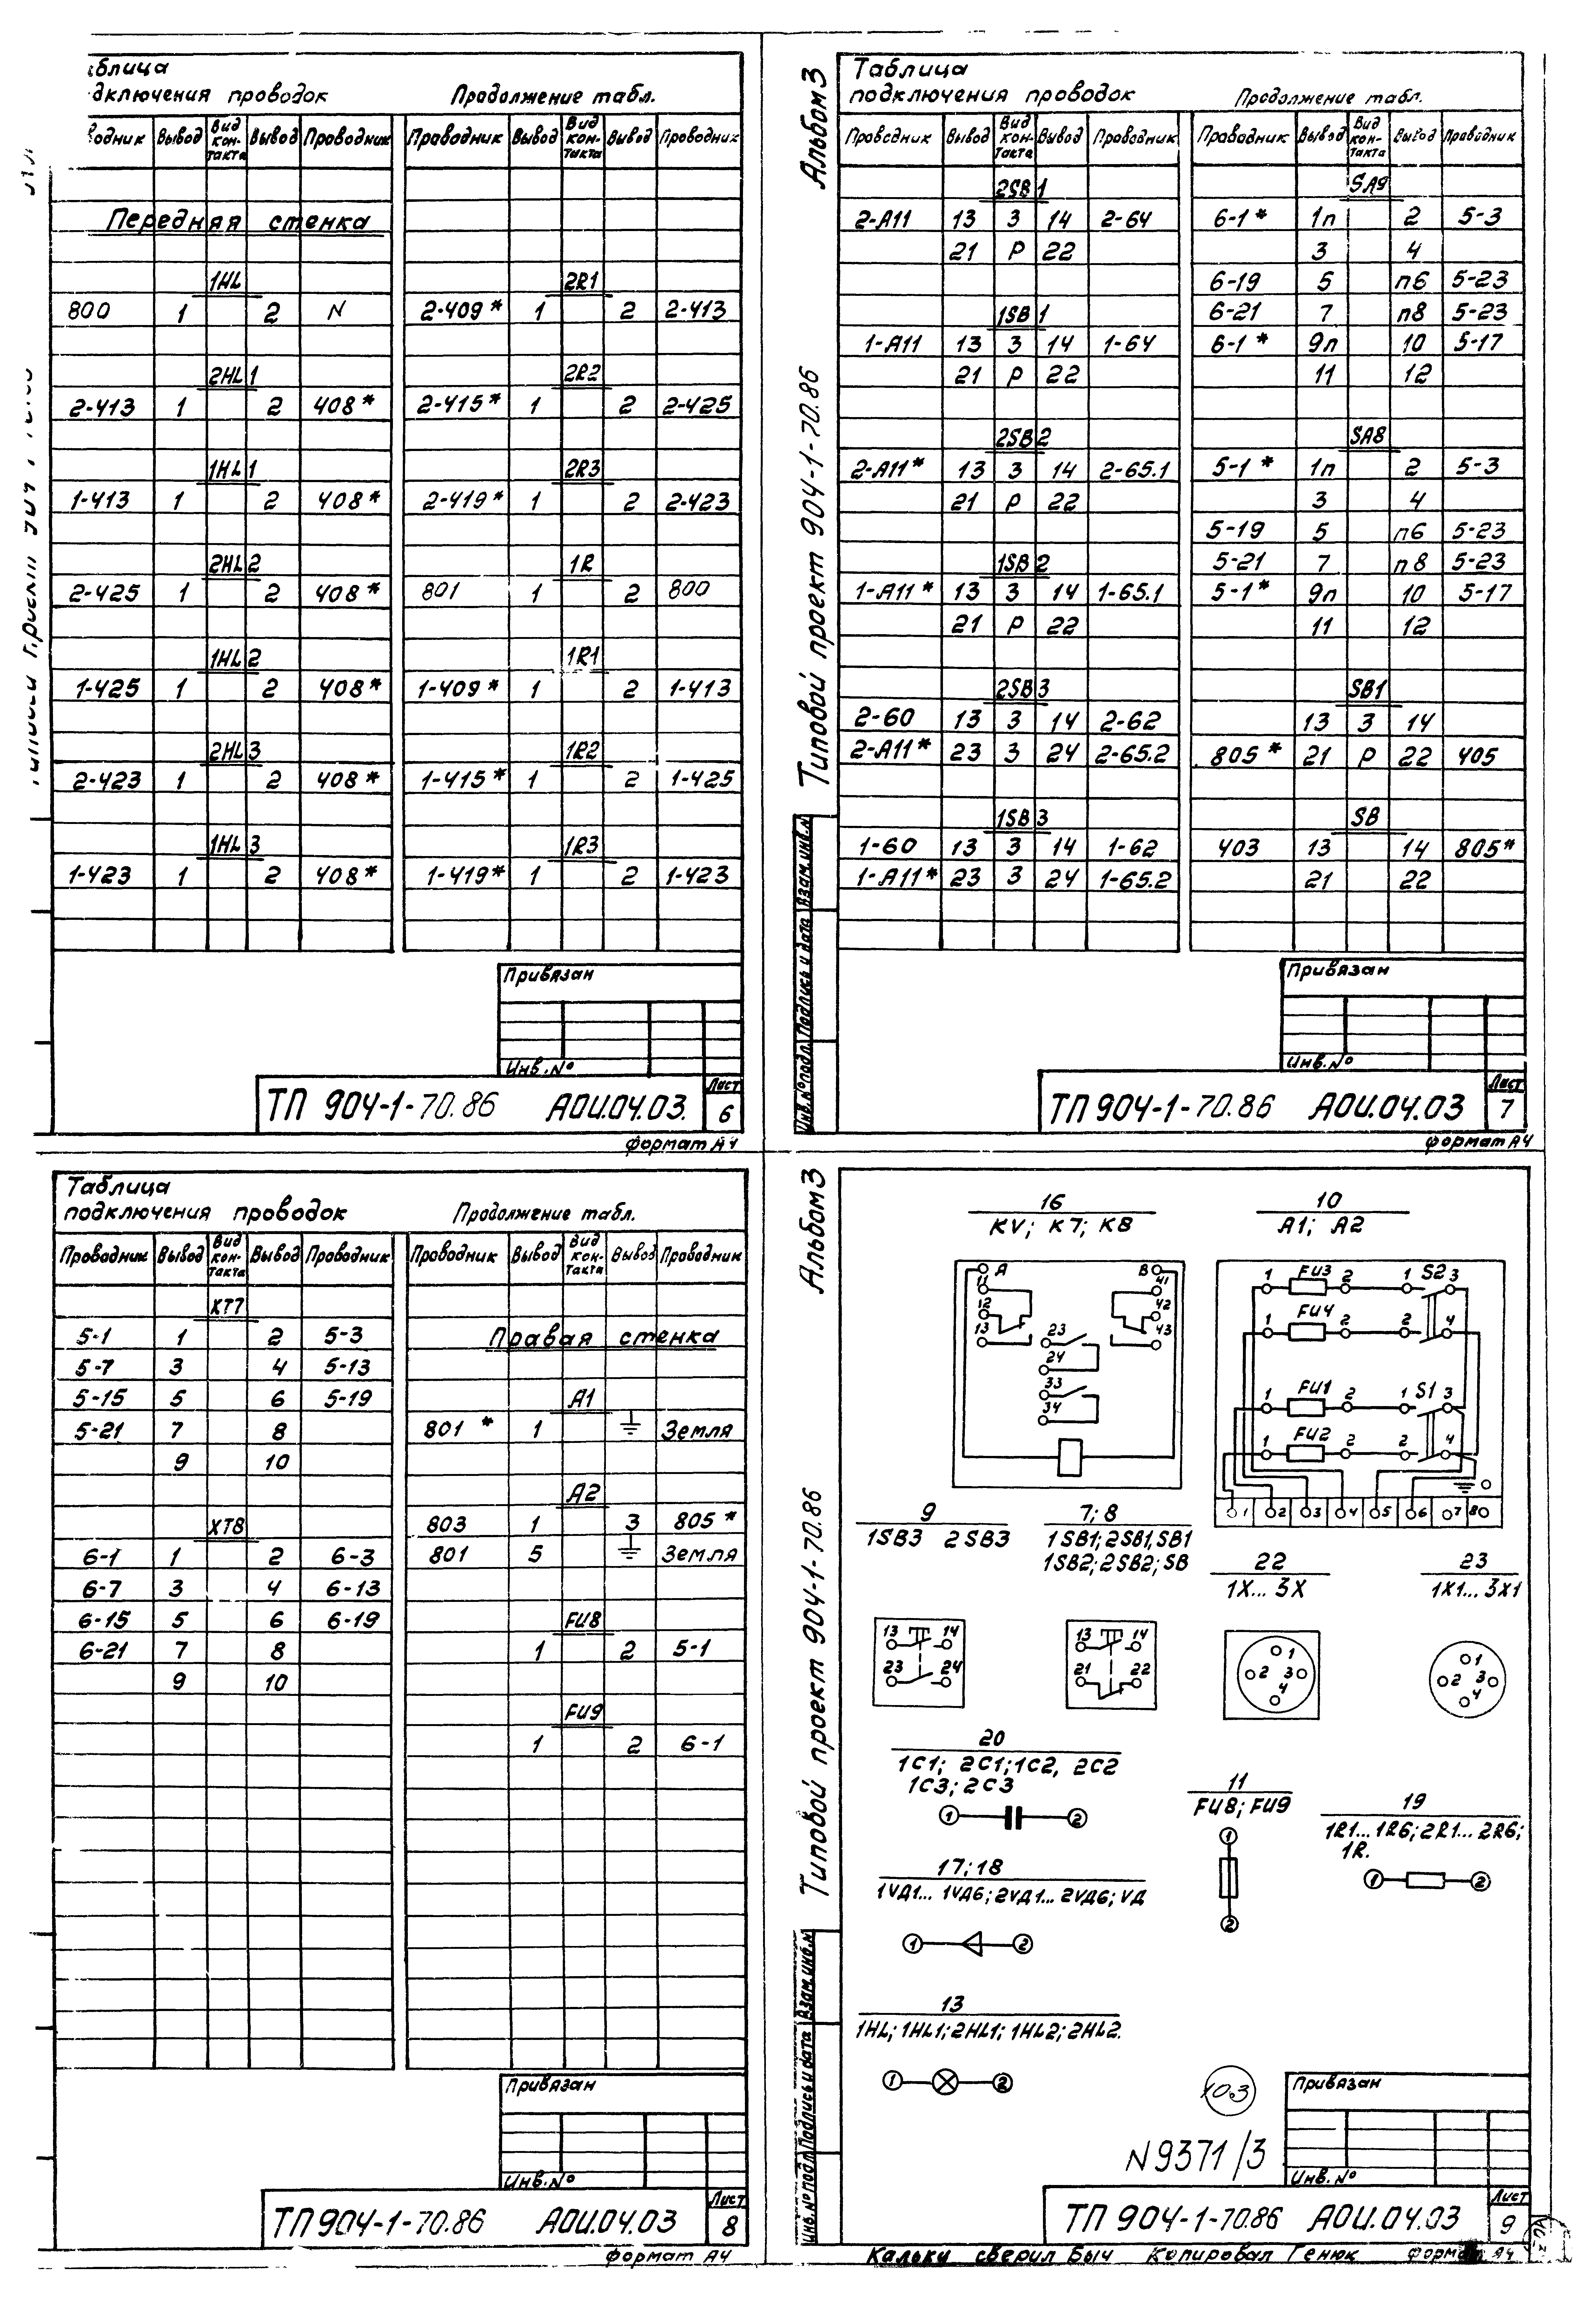 Таблица
подключения проводок Продолжение табл.
Вывод Вид контакта Вывод Проводник Проводник Вывод Вид контакта Вывод Проводник
Передняя стенка
1HL 2R1
800 1 2 N 2-409* 1 2 2-413
2HL1 2R2
2-413 1 2 408* 2-415* 1 2 2-425
1HL1 2R3
1-413 1 2 408* 2-419* 1 2 2-423
2HL2 1R
2-425 1 2 408* 801 1 2 800
1HL2 1R1
1-425 1 2 408* 1-409* 1 2 1-413
2HL3 1R2
2-423 1 2 408* 1-415* 1 2 1-425
1HL3 1R3
1-423 1 2 408* 1-419* 1 2 1-423
Привязан
Инв.№
ТП 904-1-70.86 АОИ.04.03.
Лист
6
формат А4
Альбом 3
Типовой проект 904-1-70.86
Инв.№ подл. Подпись и дата Взам.инв.№
Таблица
подключения проводок Продолжение табл.
Проводник Вывод Вид контакта Вывод Проводник Проводник Вывод Вид контакта Вывод Проводник
2SB1 SA9
2-А11 13 З 14 2-64 6-1* 1п 2 5-3
21 Р 22 3 4
6-19 5 п6 5-23
1SB1 6-21 7 п8 5-23
1-А11 13 З 14 1-64 6-1* 9п 10 5-17
21 Р 22 11 12
2SB2 SA8
2-А11* 13 З 14 2-65.1 5-1* 1п 2 5-3
21 Р 22 3 4
5-19 5 п6 5-23
1SB2 5-21 7 п8 5-23
1-А11* 13 З 14 1-65.1 5-1* 9п 10 5-17
21 Р 22 11 12
2SB3 SB1
2-60 13 З 14 2-62 13 З 14
2-А11* 23 З 24 2-65.2 805* 21 Р 22 405
1SB3 SB
1-60 13 З 14 1-62 403 13 14 805*
1-А11* 23 З 24 1-65.2 21 22
Привязан
Инв.№
ТП 904-1-70.86 АОИ.04.03
Лист
7
формат А4
Таблица
подключения проводок Продолжение табл.
Проводник Вывод Вид контакта Вывод Проводник Проводник Вывод Вид контакта Вывод Проводник
XT7
5-1 1 2 5-3 Правая стенка
5-7 3 4 5-13
5-15 5 6 5-19 A1
5-21 7 8 801* 1 Земля
9 10
A2
XT8 803 1 3 805*
6-1 1 2 6-3 801 5 Земля
6-7 3 4 6-13
6-15 5 6 6-19 FU8
6-21 7 8 1 2 5-1
9 10
FU9
1 2 6-1
Привязан
Инв.№
ТП 904-1-70.86 АОИ.04.03
Лист
8
формат А4
Альбом 3
Типовой проект 904-1-70.86
Инв.№ подл. Подпись и дата Взам.инв.№
16 10
KV; K7; K8 A1; A2
А В
11 41
12 42
13 43
23
24
33
34
1 FU3 2 1 S2 3
1 FU4 2 2 4
1 FU1 2 1 S1 3
1 FU2 2 2 4
1 2 3 4 5 6 7 8
9 7; 8
1SB3 2SB3 1SB1; 2SB1, SB1
1SB2; 2SB2; SB
22 23
1X... 3X 1X1... 3X1
13 14
23 24
13 14
21 22
1 2 3 4
1 2 3 4
20
1C1; 2C1; 1C2, 2C2
1C3; 2C3
1 2
11
FU8; FU9
1
2
19
1R1... 1R6; 2R1... 2R6;
1R.
1 2
17; 18
1VД1... 1VД6; 2VД1... 2VД6; VД
1 2
13
1HL; 1HL1; 2HL1; 1HL2; 2HL2.
1 2
N9371/3
Привязан
Инв.№
ТП 904-1-70.86 АОИ.04.03
Лист
9
Кальку сверил Быч Копировал Генюк формат А4